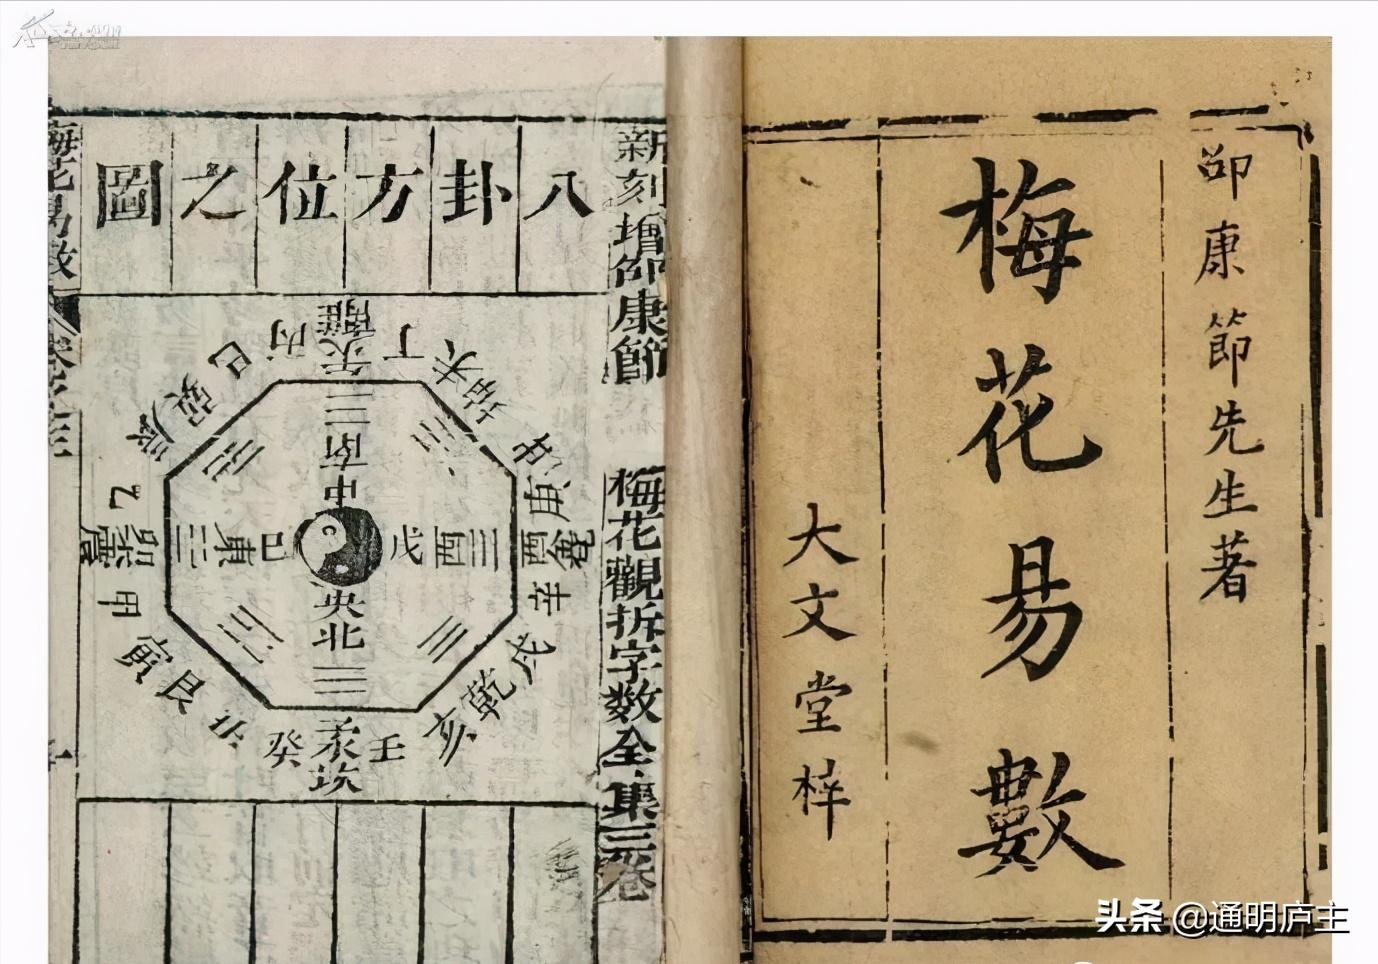 邵康節先生著
梅花易數
大文堂梓
新刻增邵康節
梅花觀拆字數全集三卷
八卦方位之圖
離
丙午丁
未坤申
庚酉兌
辛
戌乾亥
壬子癸
坎
丑艮寅
甲卯震
乙
辰巽巳
南
中
東
巳
戊
酉
央
北
梅花易数
卷之三
头条 @通明庐主